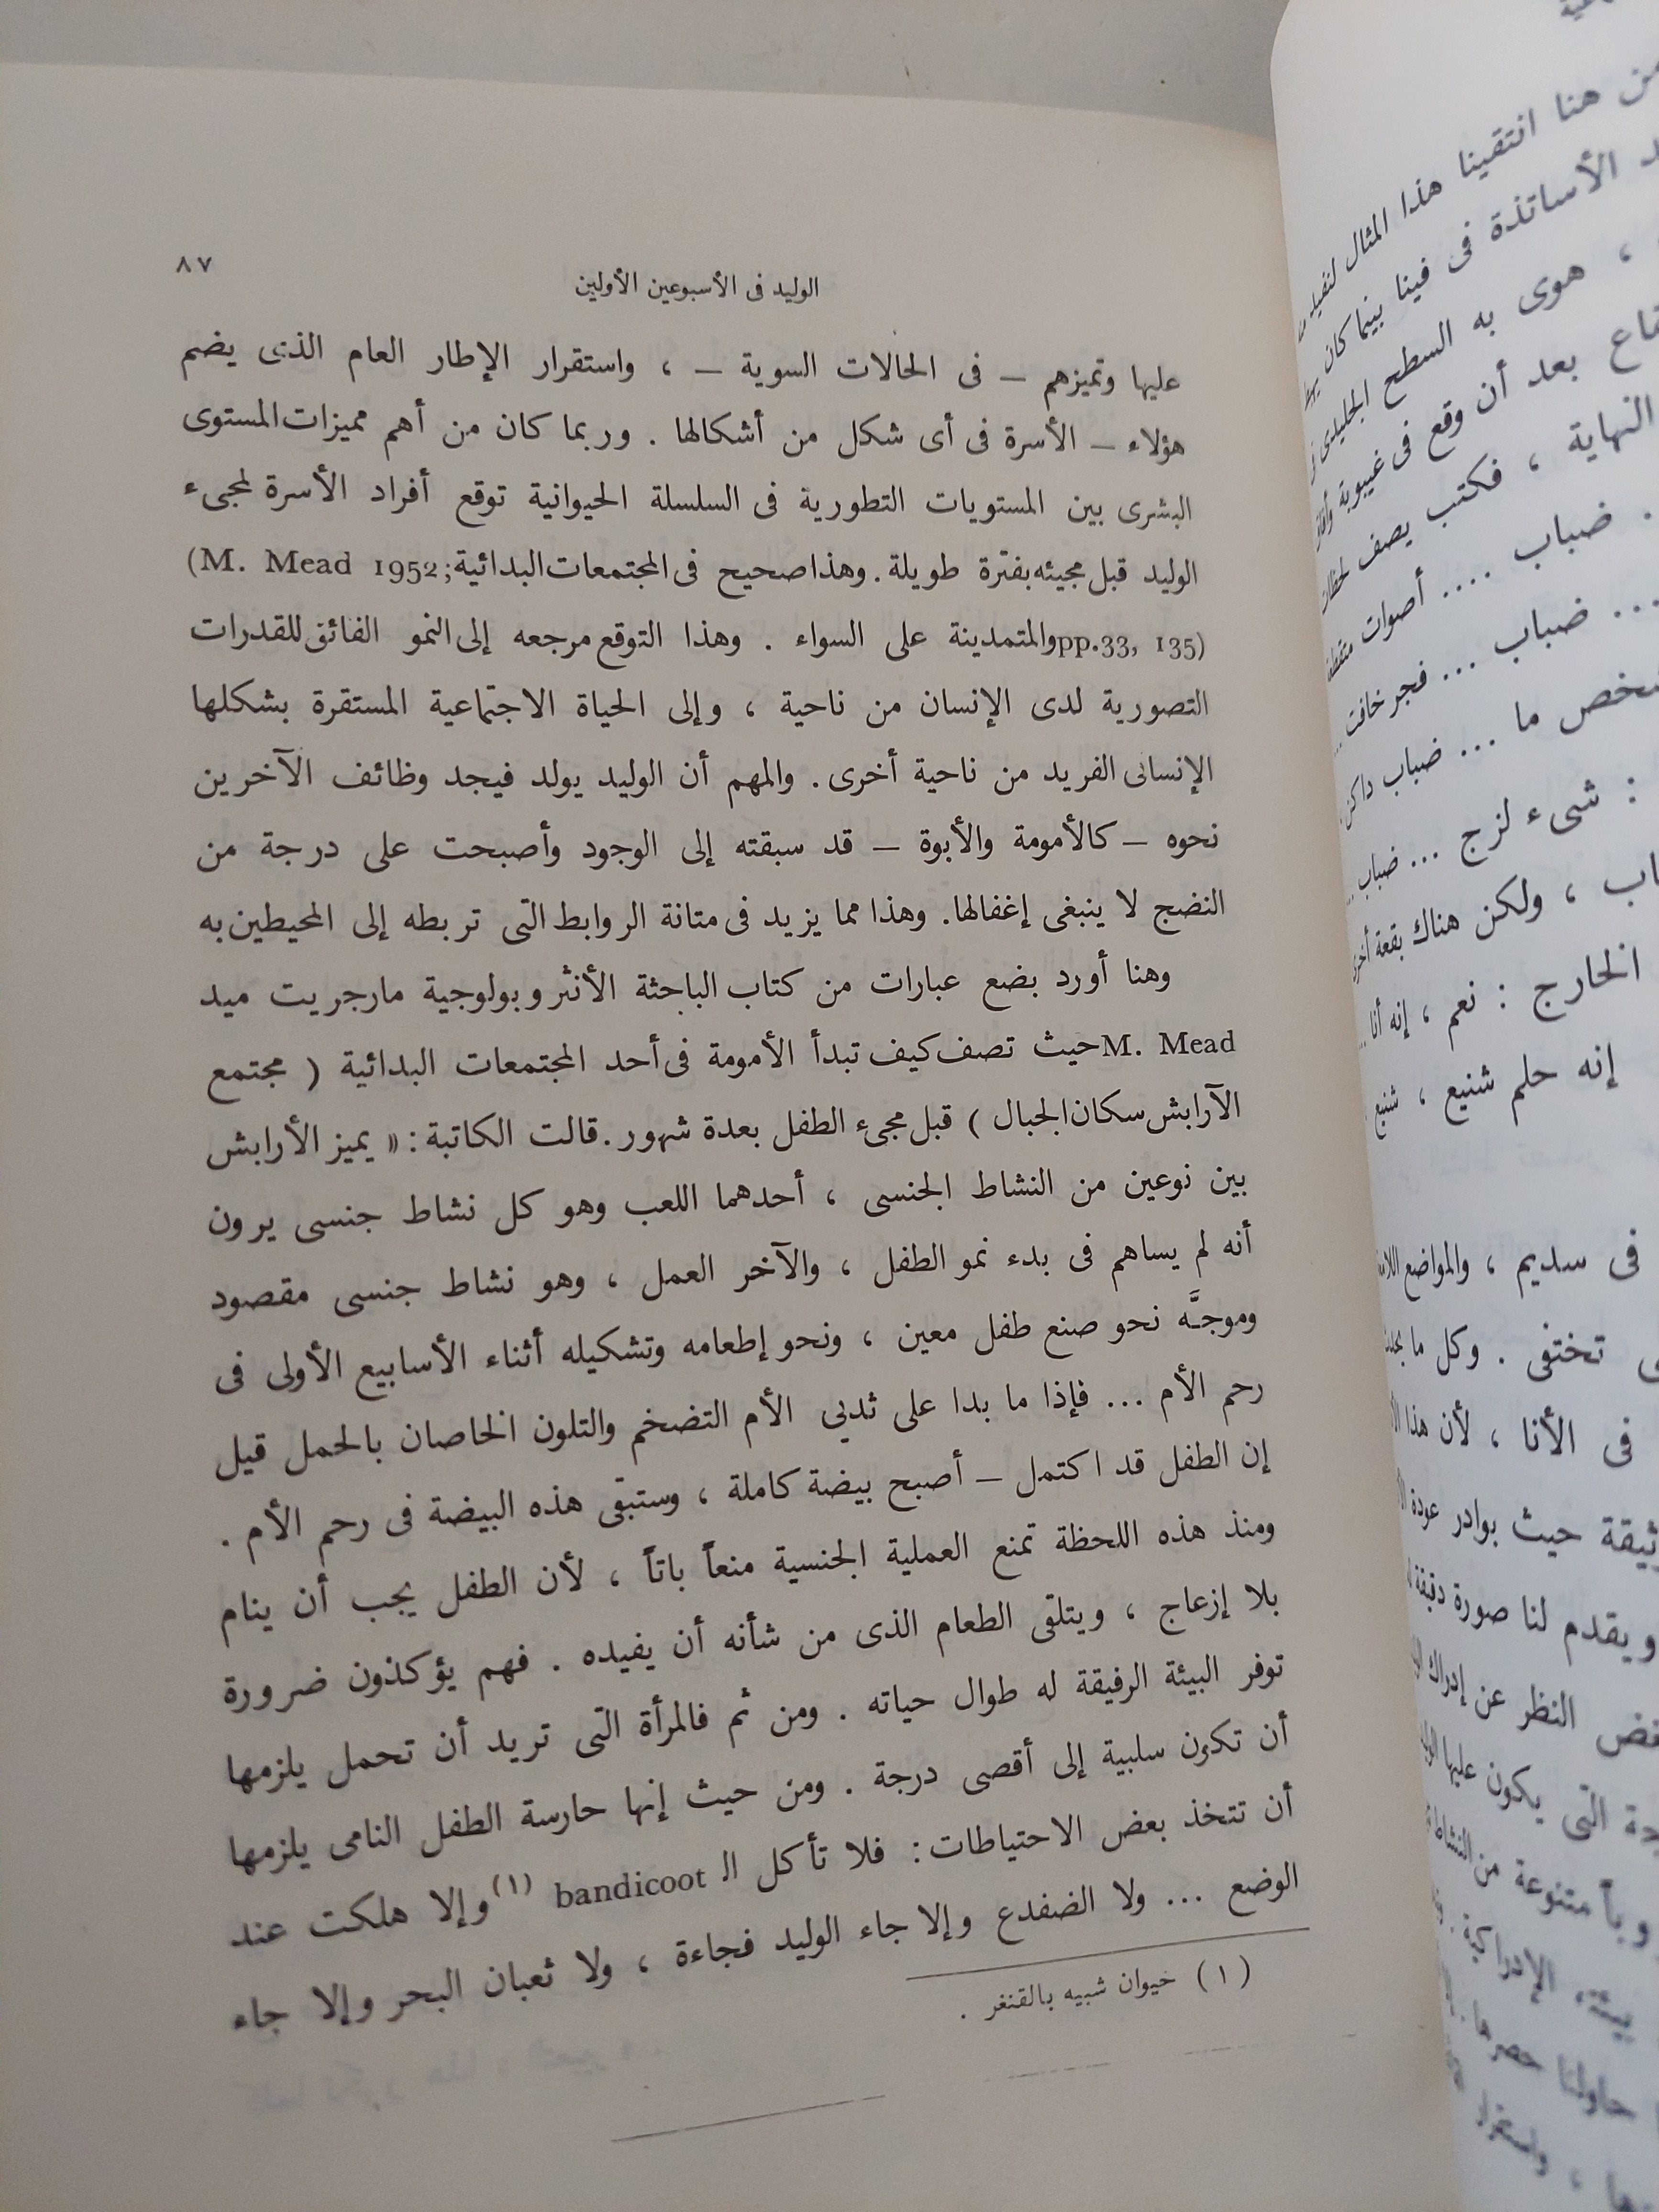 الوليد فى الأسبوعين الأولين ٨٧
عليها وتميزهم – فى الحالات السوية – ، واستقرار الإطار العام الذى يضم
هؤلاء – الأسرة فى أى شكل من أشكالها . وربما كان من أهم مميزات المستوى
البشرى بين المستويات التطورية فى السلسلة الحيوانية توقع أفراد الأسرة لمجىء
الوليد قبل مجيئه بفترة طويلة . وهذا صحيح فى المجتمعات البدائية (M. Mead 1952;
pp.33, 135) والمتمدينة على السواء . وهذا التوقع مرجعه إلى النمو الفائق للقدرات
التصورية لدى الإنسان من ناحية ، وإلى الحياة الاجتماعية المستقرة بشكلها
الإنسانى الفريد من ناحية أخرى . والمهم أن الوليد يولد فيجد وظائف الآخرين
نحوه – كالأمومة والأبوة – قد سبقته إلى الوجود وأصبحت على درجة من
النضج لا ينبغى إغفالها . وهذا مما يزيد فى متانة الروابط التى تربطه إلى المحيطين به
وهنا أورد بضع عبارات من كتاب الباحثة الأنثروبولوجية مارجريت ميد
M. Mead حيث تصف كيف تبدأ الأمومة فى أحد المجتمعات البدائية ( مجتمع
الآرابش سكان الجبال ) قبل مجىء الطفل بعدة شهور . قالت الكاتبة : « يميز الأرابش
بين نوعين من النشاط الجنسى ، أحدهما اللعب وهو كل نشاط جنسى يرون
أنه لم يساهم فى بدء نمو الطفل ، والآخر العمل ، وهو نشاط جنسى مقصود
وموجَّه نحو صنع طفل معين ، ونحو إطعامه وتشكيله أثناء الأسابيع الأولى فى
رحم الأم ... فإذا ما بدا على ثديي الأم التضخم والتلون الخاصان بالحمل قيل
إن الطفل قد اكتمل – أصبح بيضة كاملة ، وستبقى هذه البيضة فى رحم الأم .
ومنذ هذه اللحظة تمنع العملية الجنسية منعاً باتاً ، لأن الطفل يجب أن ينام
بلا إزعاج ، ويتلقى الطعام الذى من شأنه أن يفيده . فهم يؤكدون ضرورة
توفر البيئة الرفيقة له طوال حياته . ومن ثم فالمرأة التى تريد أن تحمل يلزمها
أن تكون سلبية إلى أقصى درجة . ومن حيث إنها حارسة الطفل النامى يلزمها
أن تتخذ بعض الاحتياطات : فلا تأكل الـ bandicoot (١) وإلا هلكت عند
الوضع ... ولا الضفدع وإلا جاء الوليد فجاءة ، ولا ثعبان البحر وإلا جاء
(١) حيوان شبيه بالقنغر .
من هنا انتقينا هذا المثال
الأساتذة فى فينا بينما كان
، هوى به السطح الجليدى
بعد أن وقع فى غيبوبة
النهاية ، فكتب يصف
. ضباب .... أصوات
... ضباب ... فجر خافت ...
ما ... ضباب داكن
: شىء لزج ... ضباب ...
، ولكن هناك بقعة
الخارج : نعم ، إنه أنا ...
إنه حلم شنيع ، شنيع
فى سديم ، والمواضع
تختفى . وكل ما
فى الأنا ، لأن هذا
حيث بوادر عودة
ويقدم لنا صورة دقيقة
النظر عن إدراك
التى يكون عليها
متنوعة من النشاط
الإدراكية
حاولنا حصرها